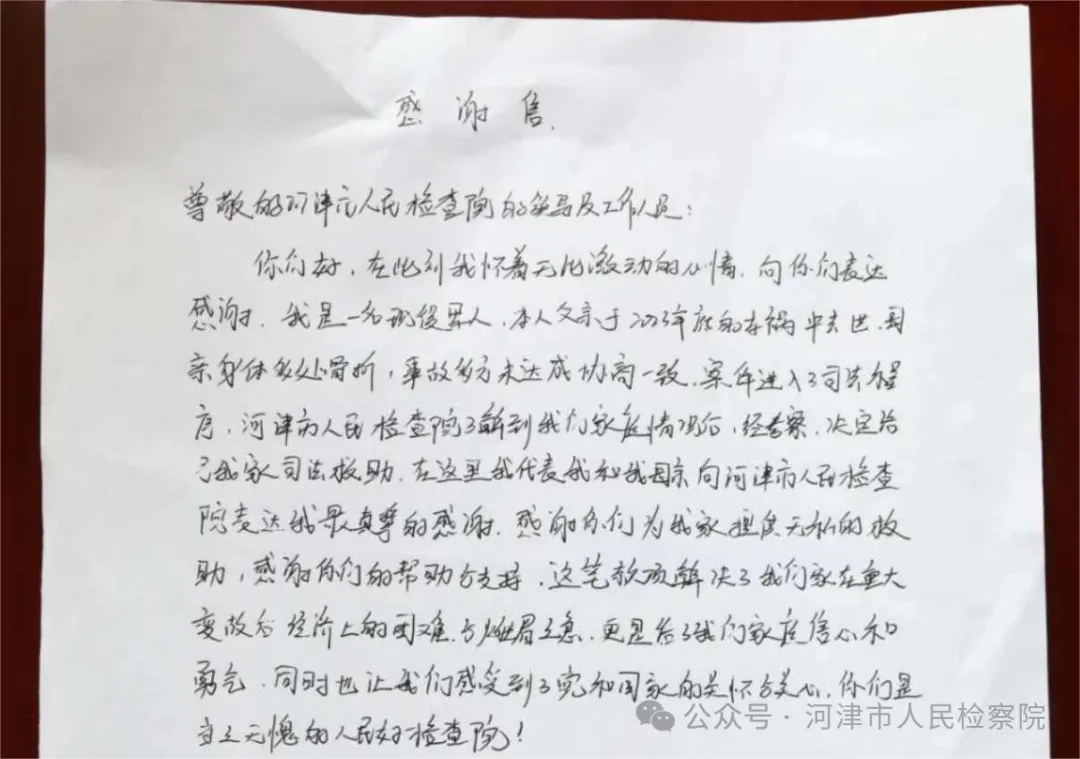 感谢信
尊敬的河津市人民检查院的领导及工作人员：
你们好，在此刻我怀着无比激动的心情，向你们表达
感谢。我是一名现役军人，本人父亲于2023年底的车祸中去世，母
亲身体多处骨折，事故多方未达成协商一致，案件进入了司法程
序，河津市人民检查院了解到我们家庭情况后，经考察，决定给
了我家司法救助，在这里我代表我和我母亲向河津市人民检查
院表达我最真挚的感谢。感谢你们为我家提供无私的救
助，感谢你们的帮助与支持，这笔款项解决了我们家在重大
变故后经济上的困难与燃眉之急，更是给了我们家庭信心和
勇气，同时也让我们感受到了党和国家的关怀与关心，你们是
当之无愧的人民好检查院！
公众号·河津市人民检察院